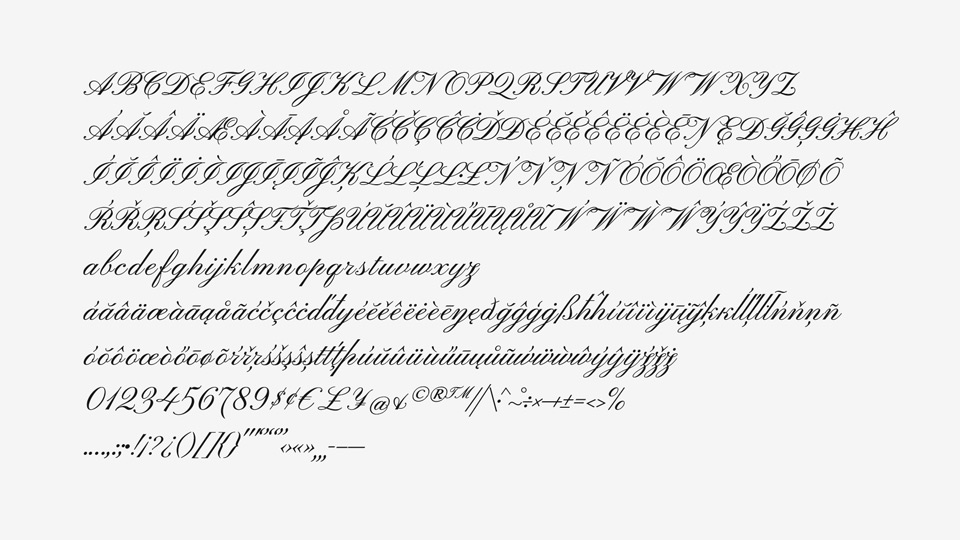 ABCDEFGHIJKLMNOPQRSTUVVWWXYZ
ÁĂÂÄÆÀĀĄÅÃĆČÇĈĊĎĐÉĔĚÊËĖÈĒŊĘÐĞĜĢĠĦĤ
ÍĬÎÏİÌIJĪĮĨĴĶĹĽĻĿŁŃŇŅÑÓŎÔÖŒÒŐŌØÕ
ŔŘŖŚŠŞŜȘŦŤŢÞÚŬÛÜÙŰŪŲŮŨẂẄẀŴÝŶŸŹŽŻ
abcdefghijklmnopqrstuvwxyz
áăâäæàāąåãćčçĉċďđýéĕěêëėèēŋęðğĝģġßħĥíĭîïìijīįĩĵķĸĺľļŀłńňņñ
óŏôöœòőōøõŕřŗśšşŝșŧťţþúŭûüùűūųůũẃẅẁŵýŷÿźžż
0123456789$¢€£¥@&©®™/|\·^~°÷×−+±=<>%
….,:;•!¡?¿()[]{}"'“”‘’‹›«»„‚-–—